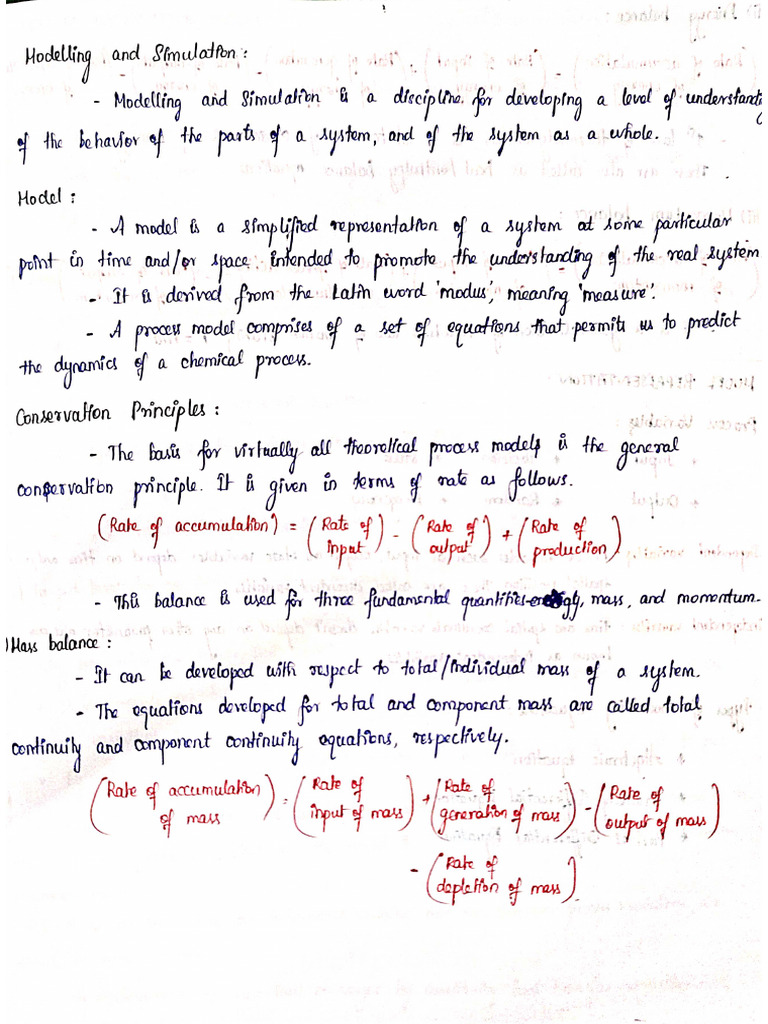 Modelling and Simulation:
- Modelling and Simulation is a discipline for developing a level of understanding
of the behavior of the parts of a system, and of the system as a whole.
Model:
- A model is a simplified representation of a system at some particular
point in time and/or space intended to promote the understanding of the real system
- It is derived from the Latin word 'modus', meaning 'measure'.
- A process model comprises of a set of equations that permits us to predict
the dynamics of a chemical process.
Conservation Principles:
- The basis for virtually all theoretical process models is the general
conservation principle. It is given in terms of rate as follows.
(Rate of accumulation) = (Rate of input) - (Rate of output) + (Rate of production)
- This balance is used for three fundamental quantities mass, and momentum.
) Mass balance:
- It can be developed with respect to total/individual mass of a system.
- The equations developed for total and component mass are called total
continuity and component continuity equations, respectively.
(Rate of accumulation of mass) = (Rate of input of mass) + (Rate of generation of mass) - (Rate of output of mass)
- (Rate of depletion of mass)